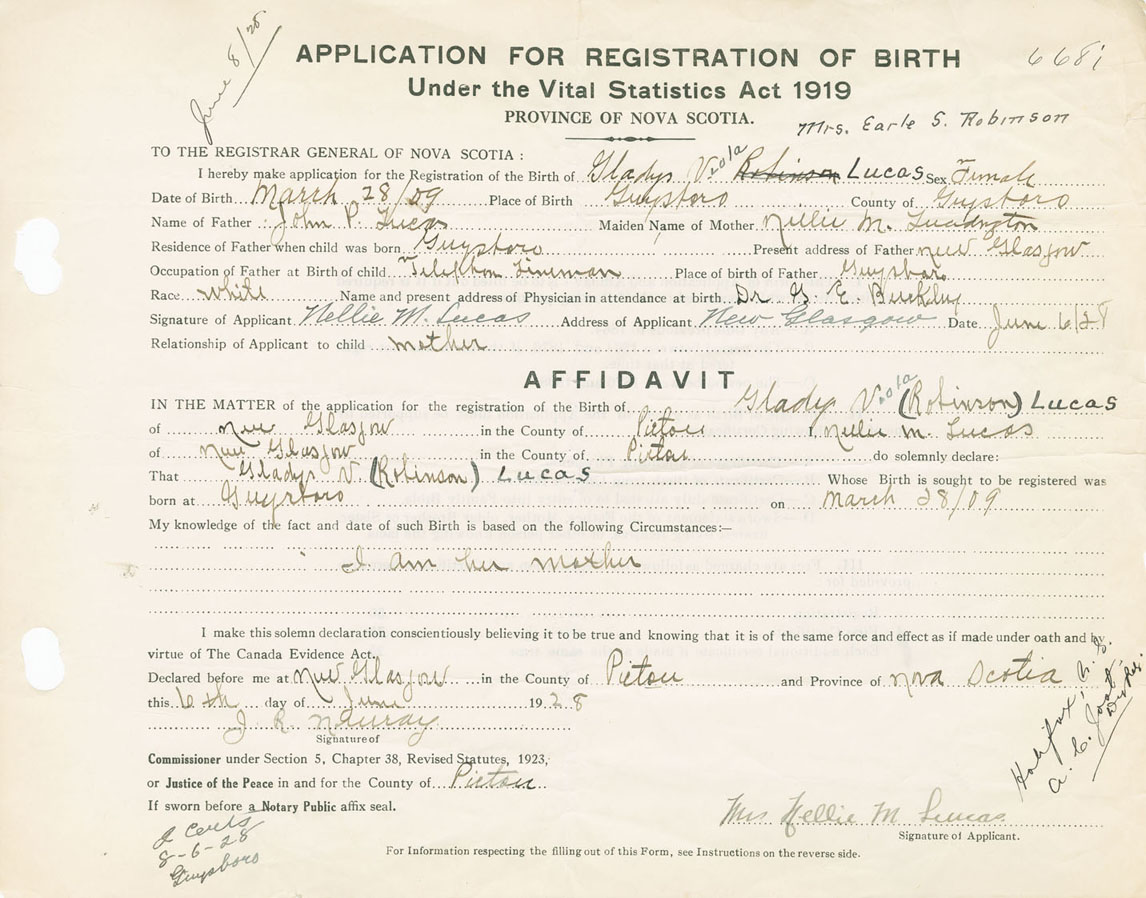 June 8/28
APPLICATION FOR REGISTRATION OF BIRTH
6681
Under the Vital Statistics Act 1919
PROVINCE OF NOVA SCOTIA.
Mrs. Earle S. Robinson
TO THE REGISTRAR GENERAL OF NOVA SCOTIA :
I hereby make application for the Registration of the Birth of Gladys Viola Robinson Lucas Sex Female
Date of Birth March 28/09 Place of Birth Guysboro County of Guysboro
Name of Father John P. Lucas Maiden Name of Mother Nellie M.
Residence of Father when child was born Guysboro Present address of Father New Glasgow
Occupation of Father at Birth of child Place of birth of Father Guysboro
Race white Name and present address of Physician in attendance at birth Dr. G. E. Buckley
Signature of Applicant Nellie M. Lucas Address of Applicant New Glasgow Date June 6/28
Relationship of Applicant to child mother
AFFIDAVIT
IN THE MATTER of the application for the registration of the Birth of Gladys Viola (Robinson) Lucas
of New Glasgow in the County of Pictou I, Nellie M. Lucas
of New Glasgow in the County of Pictou do solemnly declare:
That Gladys V. (Robinson) Lucas Whose Birth is sought to be registered was
born at Guysboro on March 28/09
My knowledge of the fact and date of such Birth is based on the following Circumstances:—
I am her mother
I make this solemn declaration conscientiously believing it to be true and knowing that it is of the same force and effect as if made under oath and by
virtue of The Canada Evidence Act.
Declared before me at New Glasgow in the County of Pictou and Province of Nova Scotia
this 6th day of June 1928
J. R.
Signature of
Commissioner under Section 5, Chapter 38, Revised Statutes, 1923,
or Justice of the Peace in and for the County of Pictou
If sworn before a Notary Public affix seal.
Halifax, N. S.
A. C. Jost,
Mrs Nellie M Lucas
Signature of Applicant.
2 Certs
8-6-28
Guysboro
For Information respecting the filling out of this Form, see Instructions on the reverse side.